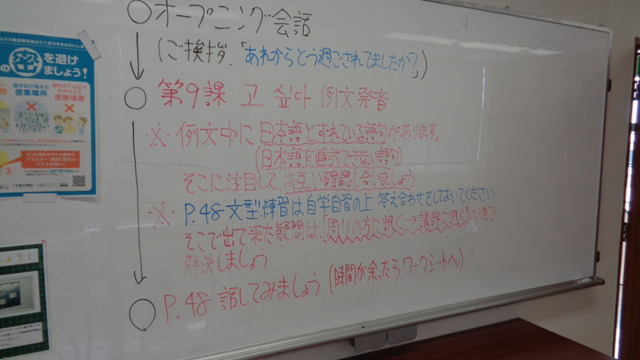 ○オープニング会話
(ご挨拶、「あれからどう過ごされてましたか?」)
○ 第9課 고 싶다 例文発音
※ 例文中に日本語とずれている語句があります。
(日本語に直訳できない語句)
そこに注目して、お互い確認し合いましょう
※ P.48文型練習は自学自習の上 答え合わせをしておいてください
そこで出て来た疑問は、周りの方に訊く→講師に訊くの順で
解決しましょう
○ P.48 話してみましょう (時間が余ったらワークシートへ)
を避け
ましょう!
密集場所
密接場面